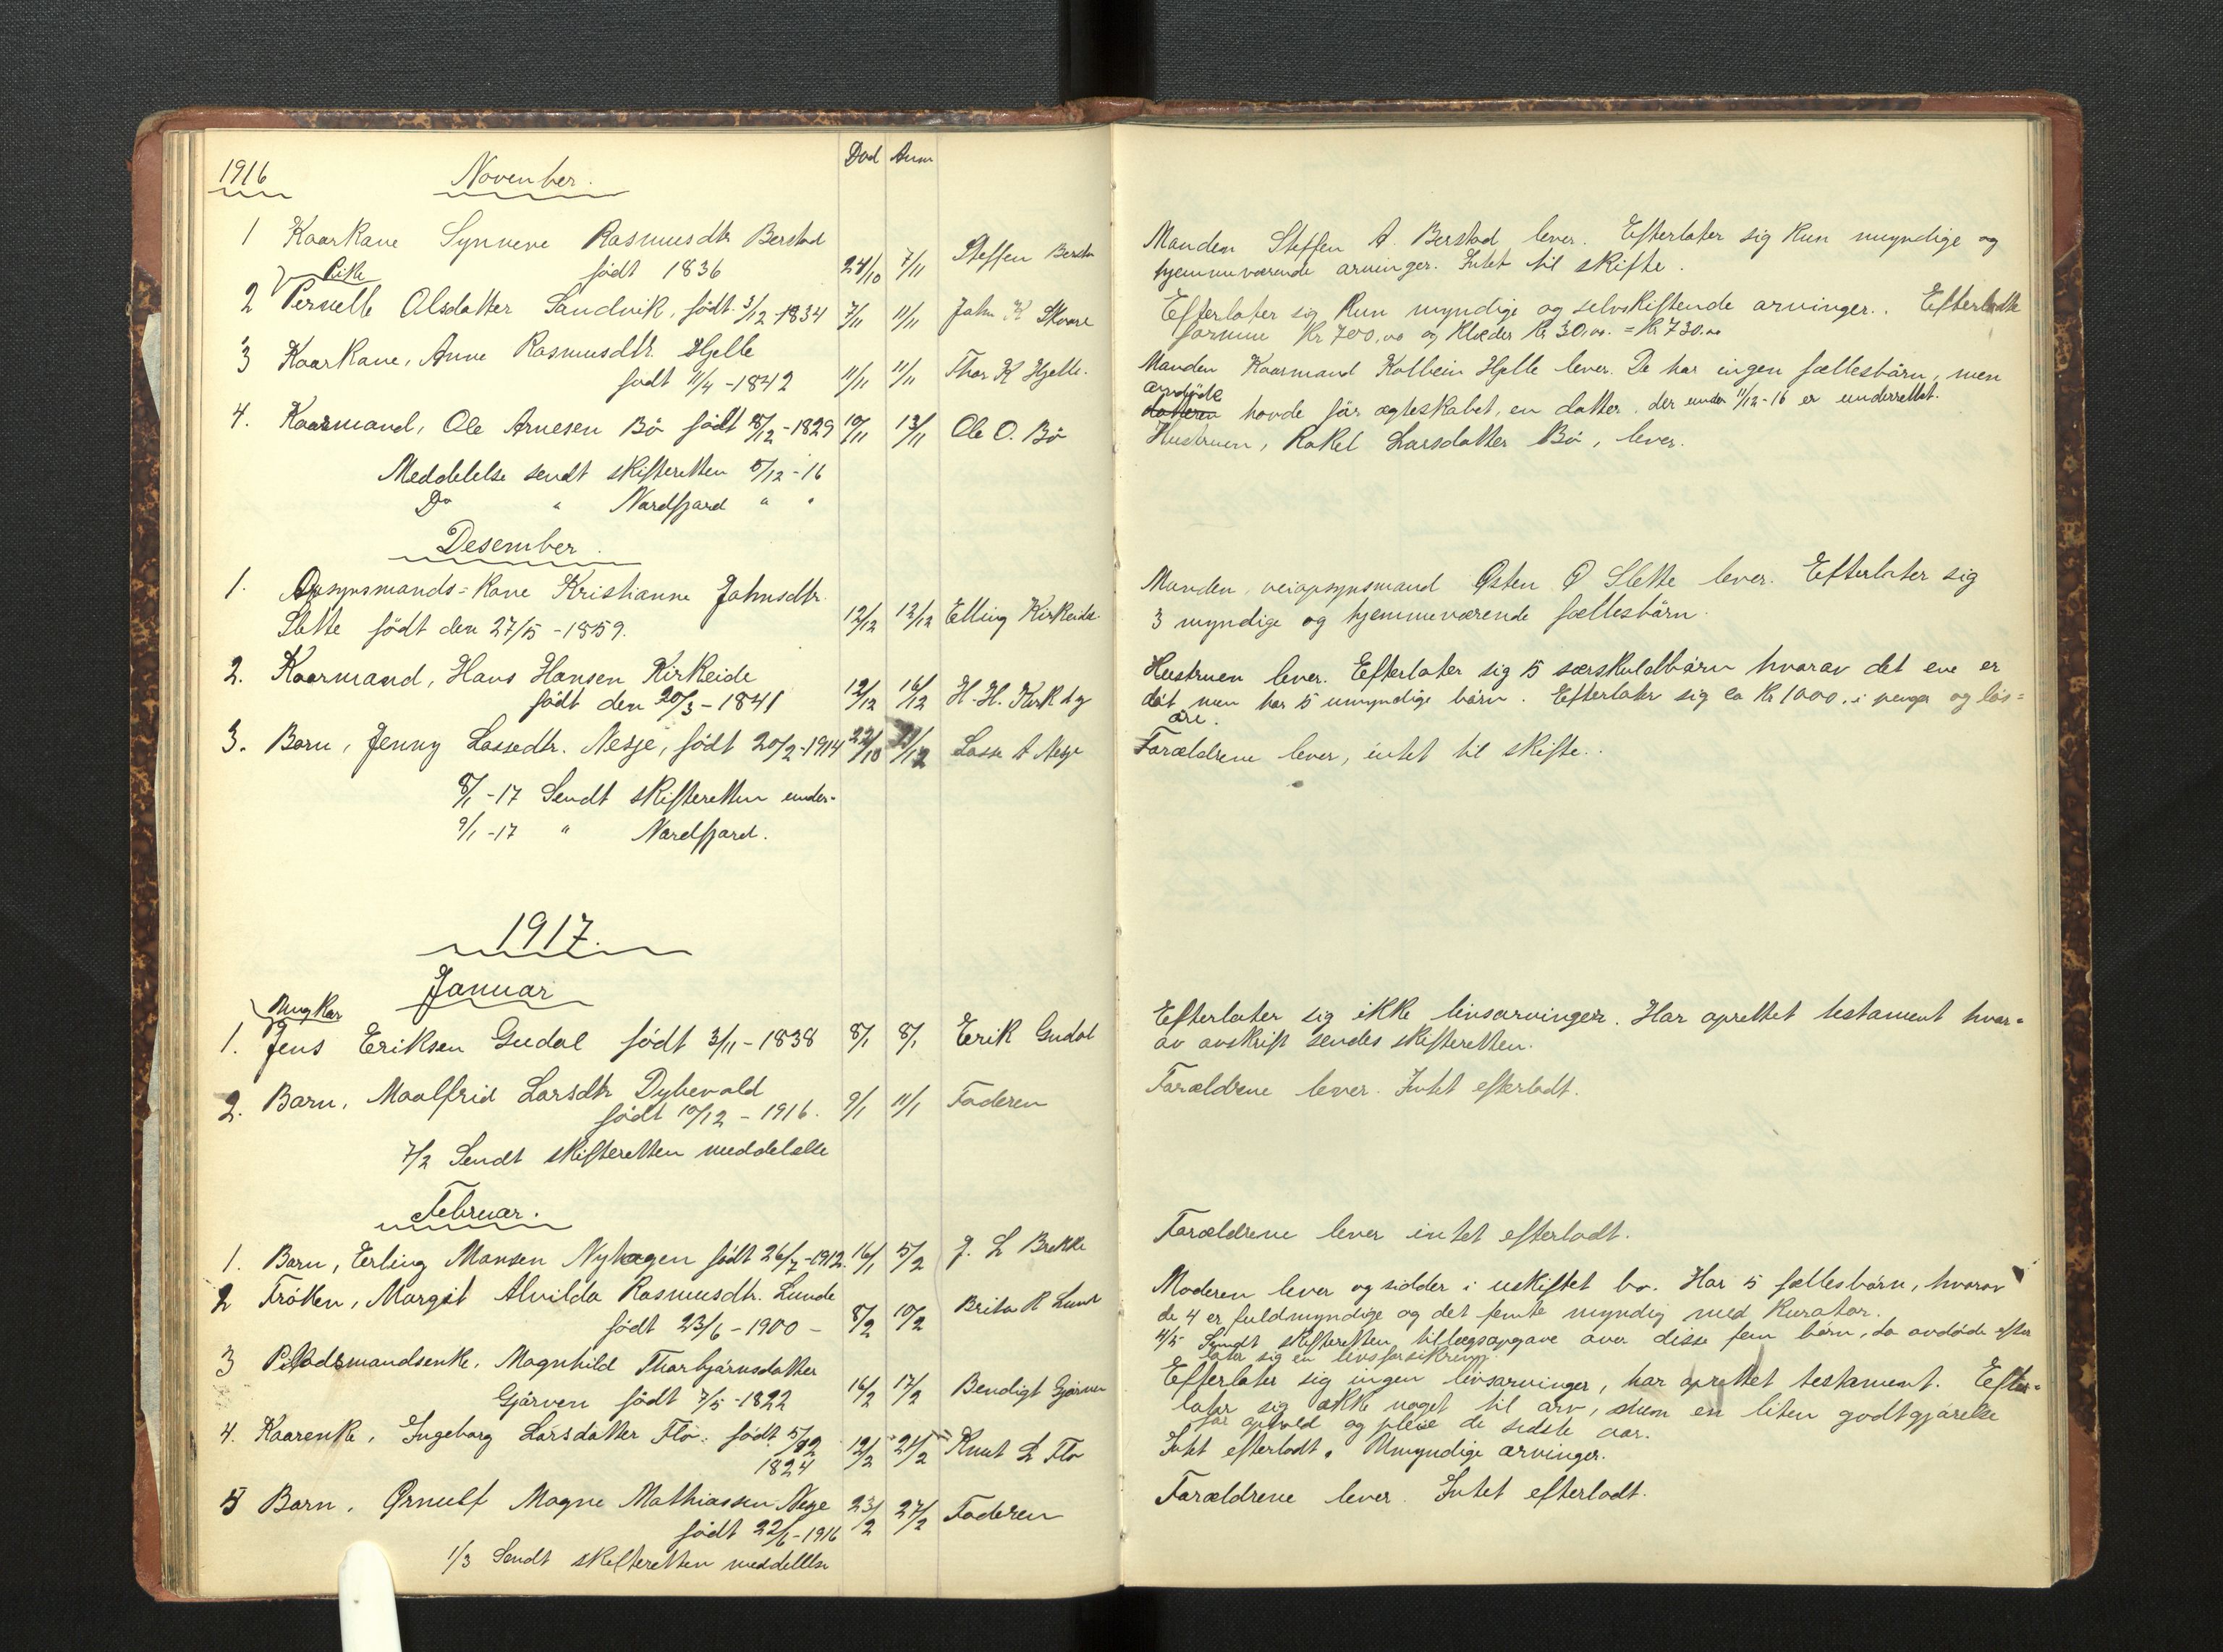 Død Anm
1916 November.
1 Kaarkone Synneve Rasmusdtr Berstad
født 1836 24/10 7/11 Steffen Bersta
Pike
2 Pernelle Olsdatter Sandvik, født 3/12-1834 7/11 11/11 John K Skaare
3 Kaarkone, Anne Rasmusdtr. Hjelle
født 11/4-1842 11/11 11/11 Thor K Hjelle.
4. Kaarmand, Ole Arnesen Bö født 8/12-1829 10/11 13/11 Ole O. Bö
Meddelelse sendt skifteretten 5/12-16
Do " Nordfjord " "
Desember.
1. Opsynsmands-kone Kristianne Johnsdtr.
Slette född den 27/5-1859. 12/12 12/12 Elling Kirkeide.
2. Kaarmand, Hans Hansen Kirkeide
født den 20/3-1841 12/12 16/12 H. H. Kirk
3. Barn, Jenny Lassedtr. Nesje, født 20/2-1914 22/10 /12 Lasse A Nesje
8/1-17 Sendt skifteretten under-
9/1-17 " Nordfjord.
1917.
Januar
Ungkar
1. Jens Eriksen Gudal født 3/11-1838 8/1 8/1 Erik Gudal
2. Barn, Maalfrid Larsdtr Dybevald
født 10/12-1916. 9/1 11/1 Faderen
7/2 Sendt skifteretten meddelelse
Februar.
1. Barn, Erling Monsen Nyhagen født 26/7-1912. 16/1 5/2 J. L Brekke
2 Fröken, Margit Alvilda Rasmusdtr. Lunde
født 23/6-1900- 8/2 10/2 Brita R Lunde
3 Pladsmandsenke, Magnhild Thorbjörnsdatter
Gjörven født 7/5-1822 16/2 17/2 Bendigt Gjörven
4. Kaarenke, Ingeborg Larsdatter Flo. født 5/12
1824 12/2 24/2 Knut L Flo
5 Barn, Ørnulf Magne Mathiassen Nesje 23/2 27/2 Faderen
født 22/6-1916
1/3 Sendt skifteretten meddelelse
Manden Steffen A. Berstad lever. Efterlater sig kun myndige og
hjemmeværende arvinger. Intet til skifte.
Efterlater sig kun myndige og selvskiftende arvinger. Efterladte
formue Kr 700,00 og klæder Kr 30,00. = Kr 730.00
Manden Kaarmand Kolbein Hjelle lever. De har ingen fællesbörn, men
avdöde
datteren havde för ægteskabet, en datter, der under 11/12-16 er underrettet.
Hustruen, Rakel Larsdatter Bö, lever.
Manden, veiopsynsmand Østen O Slette lever. Efterlater sig
3 myndige og hjemmeværende fællesbörn.
Hustruen lever. Efterlater sig 5 særskuldbörn hvorav det ene er
döt men har 5 umyndige börn. Efterlater sig ca Kr 1000, i penger og lös-
öre.
Forældrene lever, intet til skifte.
Efterlater sig ikke livsarvinger. Har oprettet testament hvor-
av avskrift sendes skifteretten.
Forældrene lever. Intet efterladt.
Forældrene lever intet efterladt.
Moderen lever og sidder i uskiftet bo. Har 5 fællesbörn, hvorav
de 4 er fuldmyndige og det femte myndig med kurator.
4/5 Sendt skifteretten tillægsopgave over disse fem börn, da avdöde efter
later sig en livsforsikring.
Efterlater sig ingen livsarvinger, har oprettet testament. Efter-
later sig ikke noget til arv, uten en liten godtgjörelse
for ophold og pleie de sidste aar.
Intet efterladt. Umyndige arvinger.
Forældrene lever. Intet efterladt.